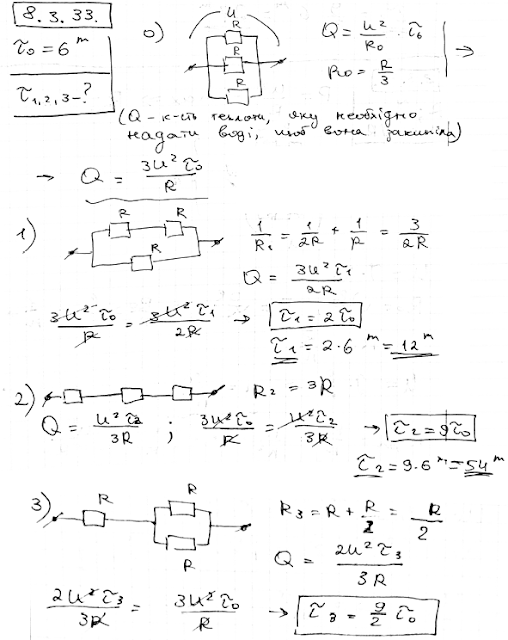 8.3.33.
τ₀ = 6 ᵐ
τ₁,₂,₃ – ?
0)
U
R
R
R
Q = U²/R₀ · τ₀
R₀ = R/3
→
(Q – к-сть теплоти, яку необхідно
надати воді, щоб вона закипіла)
→ Q = 3U²τ₀/R
1)
R R
R
1/R₁ = 1/2R + 1/R = 3/2R
Q = 3U²τ₁/2R
3U²τ₀/R = 3U²τ₁/2R → τ₁ = 2τ₀
τ₁ = 2·6 ᵐ = 12 ᵐ
2) R₂ = 3R
Q = U²τ₂/3R ; 3U²τ₀/R = U²τ₂/3R → τ₂ = 9τ₀
τ₂ = 9·6 ᵐ = 54 ᵐ
3)
R
R
R
R₃ = R + R/2 = R/2
Q = 2U²τ₃/3R
2U²τ₃/3R = 3U²τ₀/R → τ₃ = 9/2 τ₀